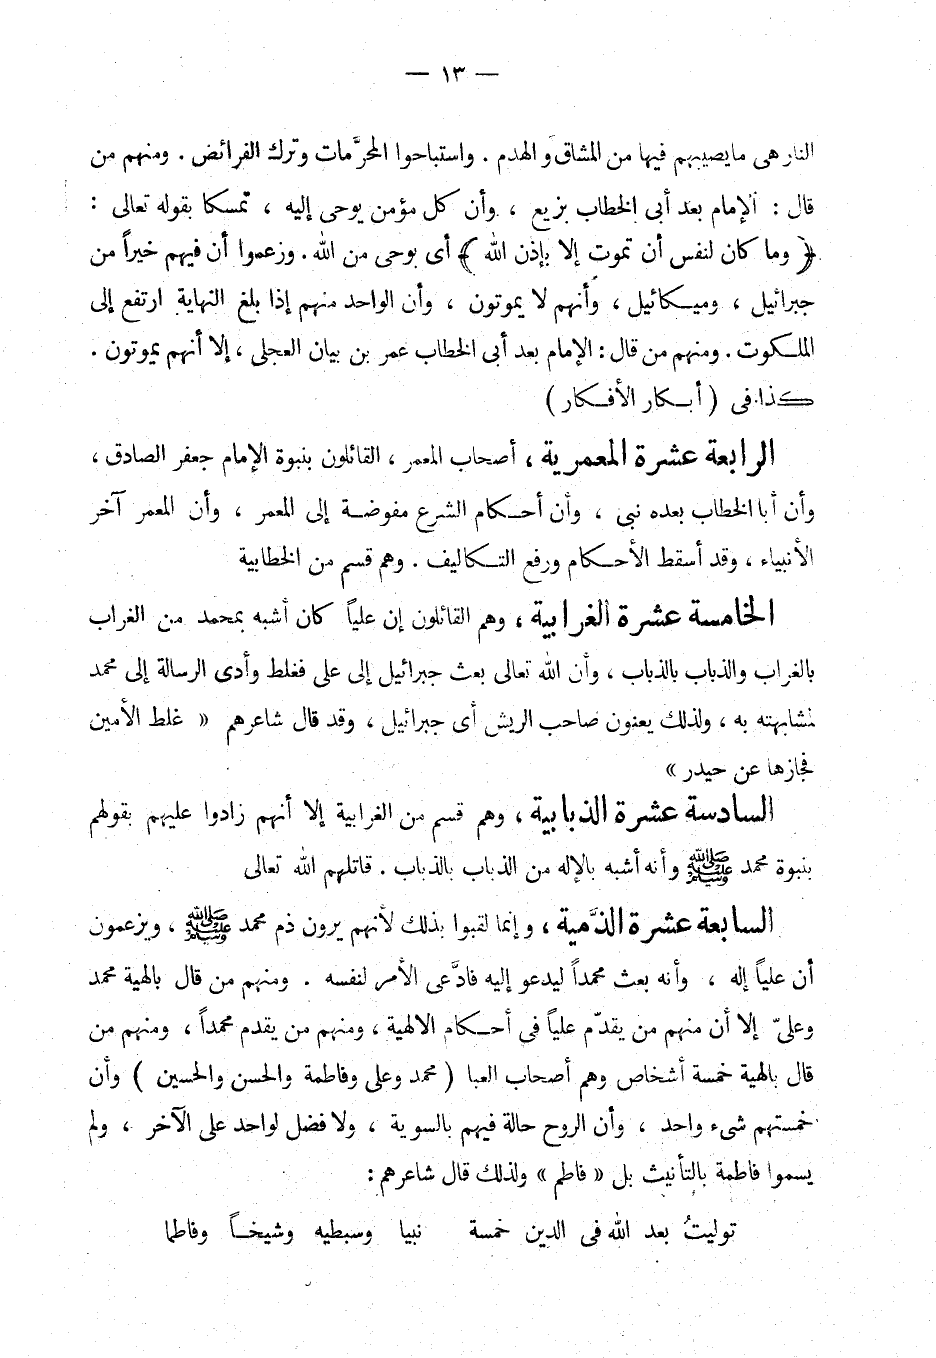 — ١٣ —
النار هى ما يصيبهم فيها من المشاق و الهدم . واستباحوا المحرَّمات وترك الفرائض . ومنهم من
قال : الإمام بعد أبى الخطاب بزيع ، وأن كل مؤمن يوحى إليه ، تمسكا بقوله تعالى :
﴿ وما كان لنفس أن تموت إلا بإذن الله ﴾ أى بوحى من الله . وزعموا أن فيهم خيراً من
جبرائيل ، وميكائيل ، وأنهم لا يموتون ، وأن الواحد منهم إذا بلغ النهاية ارتفع إلى
الملكوت . ومنهم من قال : الإمام بعد أبى الخطاب عمر بن بيان العجلى ، إلا أنهم يموتون .
كذا فى ( أبكار الأفكار )
الرابعة عشرة المعمرية ، أصحاب المعمر ، القائلون بنبوة الإمام جعفر الصادق ،
وأن أبا الخطاب بعده نبى ، وأن أحكام الشرع مفوضة إلى المعمر ، وأن المعمر آخر
الأنبياء ، وقد أسقط الأحكام ورفع التكاليف . وهم قسم من الخطابية
الخامسة عشرة الغرابية ، وهم القائلون إن علياً كان أشبه بمحمد من الغراب
بالغراب والذباب بالذباب ، وأن الله تعالى بعث جبرائيل إلى على فغلط وأدى الرسالة إلى محمد
لمشابهته به ، ولذلك يعنون صاحب الريش أى جبرائيل ، وقد قال شاعرهم « غلط الأمين
فجازها عن حيدر »
السادسة عشرة الذبابية ، وهم قسم من الغرابية إلا أنهم زادوا عليهم بقولهم
بنبوة محمد ﷺ وأنه أشبه بالإله من الذباب بالذباب . قاتلهم الله تعالى
السابعة عشرة الذَّمية ، وإنما لقبوا بذلك لأنهم يرون ذم محمد ﷺ ، ويزعمون
أن علياً إله ، وأنه بعث محمداً ليدعو إليه فادَّعى الأمر لنفسه . ومنهم من قال بالهية محمد
وعلىّ إلا أن منهم من يقدّم علياً فى أحكام الالهية ، ومنهم من يقدم محمداً ، ومنهم من
قال بالهية خمسة أشخاص وهم أصحاب العبا ( محمد وعلى وفاطمة والحسن والحسين ) وأن
خمستهم شىء واحد ، وأن الروح حالة فيهم بالسوية ، ولا فضل لواحد على الآخر ، ولم
يسموا فاطمة بالتأنيث بل « فاطم » ولذلك قال شاعرهم :
توليتُ بعد الله فى الدين خمسة نبيا وسبطيه وشيخاً وفاطما